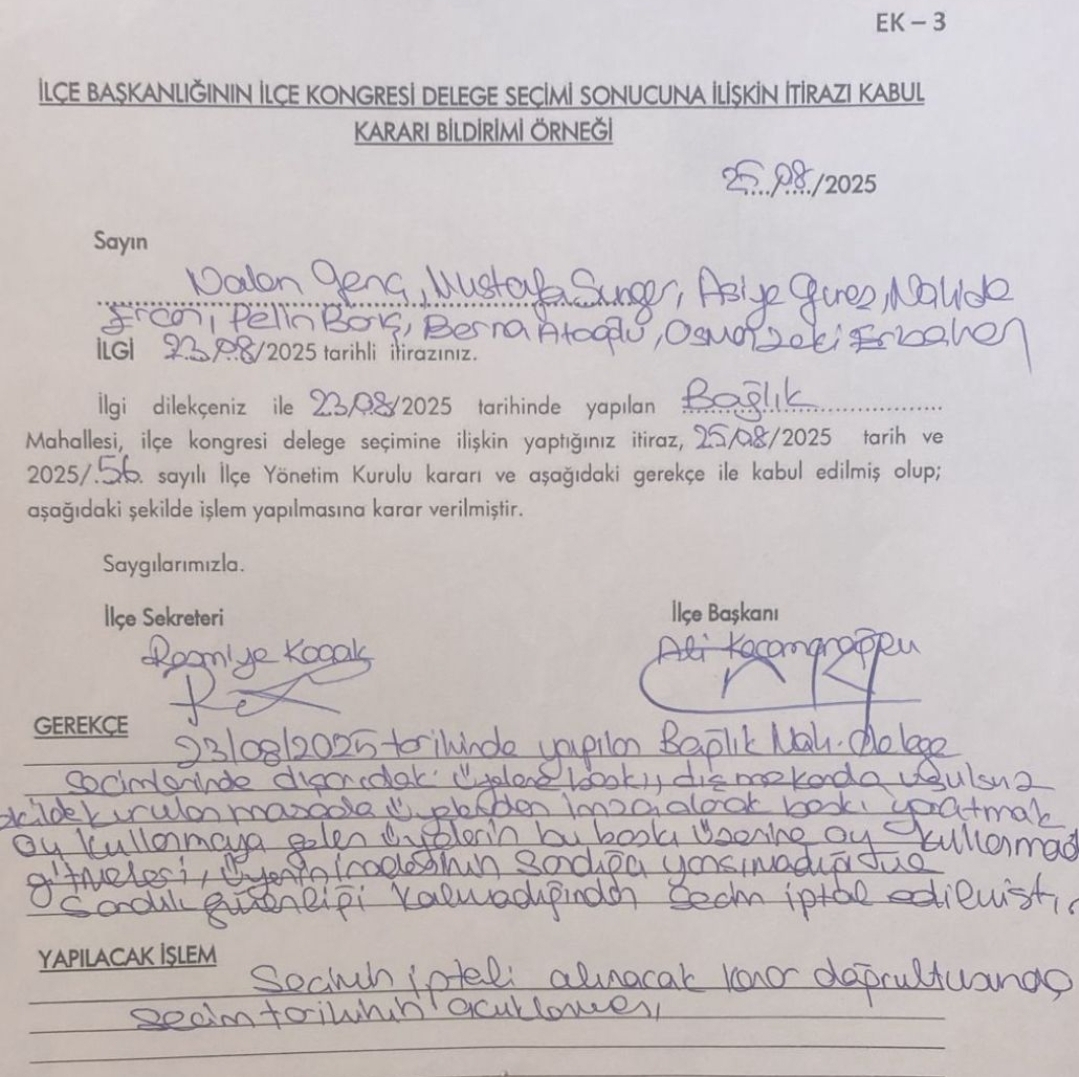 EK – 3
İLÇE BAŞKANLIĞININ İLÇE KONGRESİ DELEGE SEÇİMİ SONUCUNA İLİŞKİN İTİRAZI KABUL
KARARI BİLDİRİMİ ÖRNEĞİ
25/08/2025
Sayın
Nalan Genç, Mustafa Sunger, Asiye Gures, Nahide
Ercan, Pelin Barış, Berna Ataoğlu, Osman Zeki Erbahen
İLGİ 23/08/2025 tarihli itirazınız.
İlgi dilekçeniz ile 23/08/2025 tarihinde yapılan Bağlık
Mahallesi, ilçe kongresi delege seçimine ilişkin yaptığınız itiraz, 25/08/2025 tarih ve
2025/.56. sayılı İlçe Yönetim Kurulu kararı ve aşağıdaki gerekçe ile kabul edilmiş olup;
aşağıdaki şekilde işlem yapılmasına karar verilmiştir.
Saygılarımızla.
İlçe Sekreteri İlçe Başkanı
Resmiye Koçak Ali
GEREKÇE
23/08/2025 tarihinde yapılan Bağlık Mah. Delege
Seçimlerinde dışarıdaki üyelere baskı, dış mekanda usulsuz
şekilde kurulan masada üyelerden imza alarak baskı yaratmak
oy kullanmaya gelen üyelerin bu baskı üzerine oy kullanmadan
gitmeleri, üyenin iradesinin Sandığa yansımadığı
Sandık güvenliği kalmadığından Seçim iptal edilmiştir
YAPILACAK İŞLEM
Seçimin iptali alınacak karar doğrultusunda
seçim tarihinin açıklaması